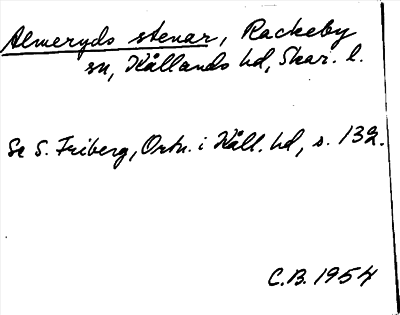 Almeryds stenar, Rackeby
sn, Kållands hd, Skar. l.
Se S. Friberg, Ortn. i Kåll. hd, s. 132.
C.B. 1954